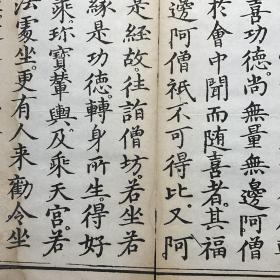 喜功德尚無量無邊阿僧
於會中聞而隨喜者其福
邊阿僧祇不可得比又阿
是經故往詣僧坊若坐若
緣是功德轉身所生得好
乘珍寶輦輿及乘天宮若
法處坐更有人來勸令坐